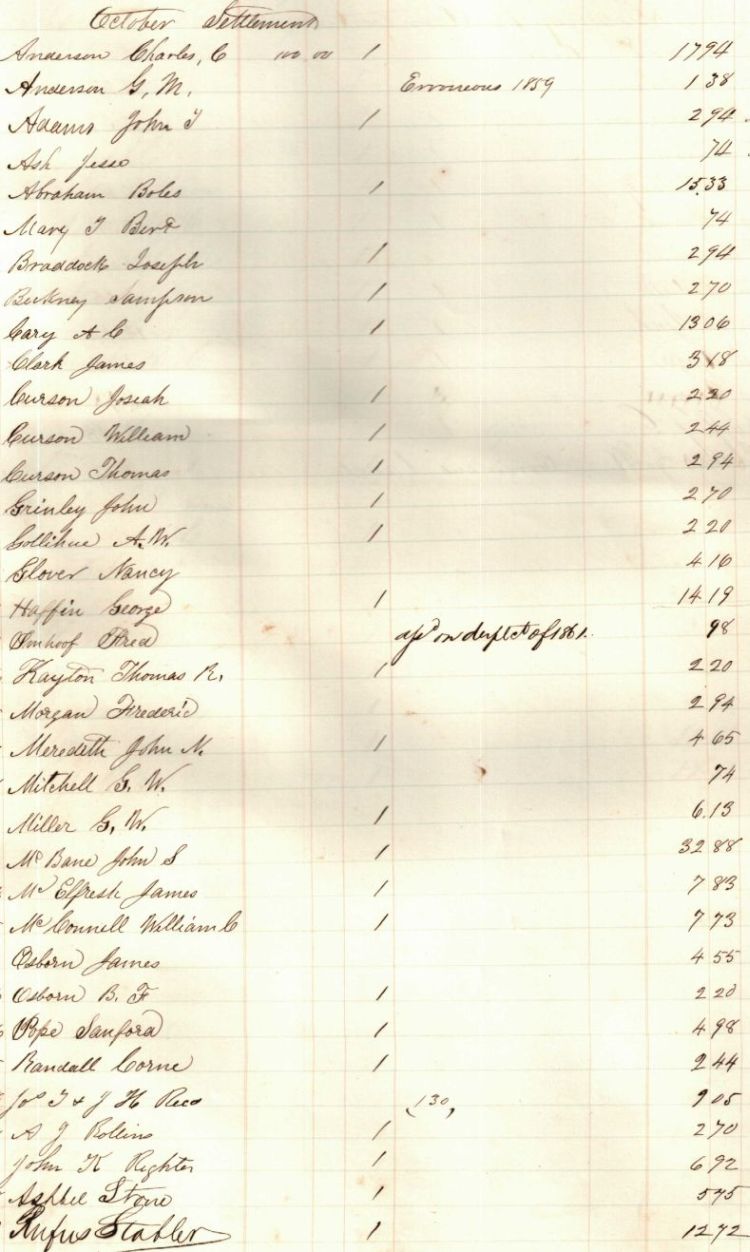 October Settlement
Anderson Charles, C 100 00 1 1794
Anderson G, M, Erroneous 1859 1 38
Adams John T 1 294
Ash Jesse 74
Abraham Boles 1 15.33
Mary T Bird 74
Braddock Joseph 1 294
Buckney Sampson 1 270
Cary A C 1 1306
Clark James 318
Curson Josiah 1 220
Curson William 1 244
Curson Thomas 1 294
Grinley John 1 270
Gollihue A. W. 1 220
Glover Nancy 416
Haffin George 1 1419
Omhoof Fred on duplct of 1861. 98
Kayton Thomas R. 1 220
Morgan Frederic 294
Meredeth John N. 1 465
Mitchell G. W. 74
Miller G, W. 1 6.13
McBane John S 1 3288
McElfresh James 1 783
McConnell William C 1 773
Osborn James 455
Osborn B. F 1 220
Pope Sanford 1 498
Randall Corne 1 244
Jos T & J H Reed (130, 905
A J Rollins 1 270
John K Righter 1 692
Ashbel Stone 1 545
Rufus Stabler 1 1272